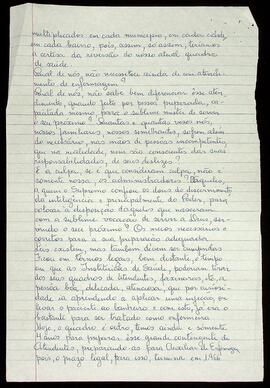 multiplicados em cada município, em cada cidade,
em cada bairro, pois, assim, só assim, teríamos
a certeza da reversão do nosso atual quadro
de saúde.
Qual de nós, não necessitou ainda de um atendi-
mento de enfermagem?
Qual de nós, não sabe bem diferenciar êsse aten-
dimento, quando feito por pessoa preparada, ca-
pacitada mesmo, para o sublime mister de servir
o seu próximo? Quantas e quantas vezes nós,
nossos familiares, nossos semelhantes, sofrem além
do necessário, nas mãos de pessoas incompetentes,
que na realidade, nem são conscientes das suas
responsabilidades, de seus deslizes?
E a culpa, se é que consideram culpa, não é
somente nossa, os administradores? Daqueles,
a quem o Supremo confiou os dons do discernimento,
da inteligência e principalmente do Poder, para
colocar a disposição daqueles que nasceram
com a sublime vocação de servir a Deus, ser-
vindo o seu próximo? Os meios necessários e
corretos para a sua preparação adequada.
Leis existem, mas também devem ser cumpridas
Ficou em termos legais, bem distante, o tempo
em que as Instituições de Saúde, poderiam tirar
dos seus quadros de atendentes, faxineiros, etc, a
pessoa boa, delicada, atenciosa, que por curiosi-
dade ia aprendendo a aplicar uma injeção, ou
levar o paciente ao banheiro e com isto, já era o
bastante para ser tratado como enfermeira
Hoje, o quadro é outro, temos ainda e somente
4 anos para preparar, esse grande contingente de
Atendentes, preparando-as para Auxiliar de Enfermagem,
pois, o prazo legal, para isso, termina em 1966